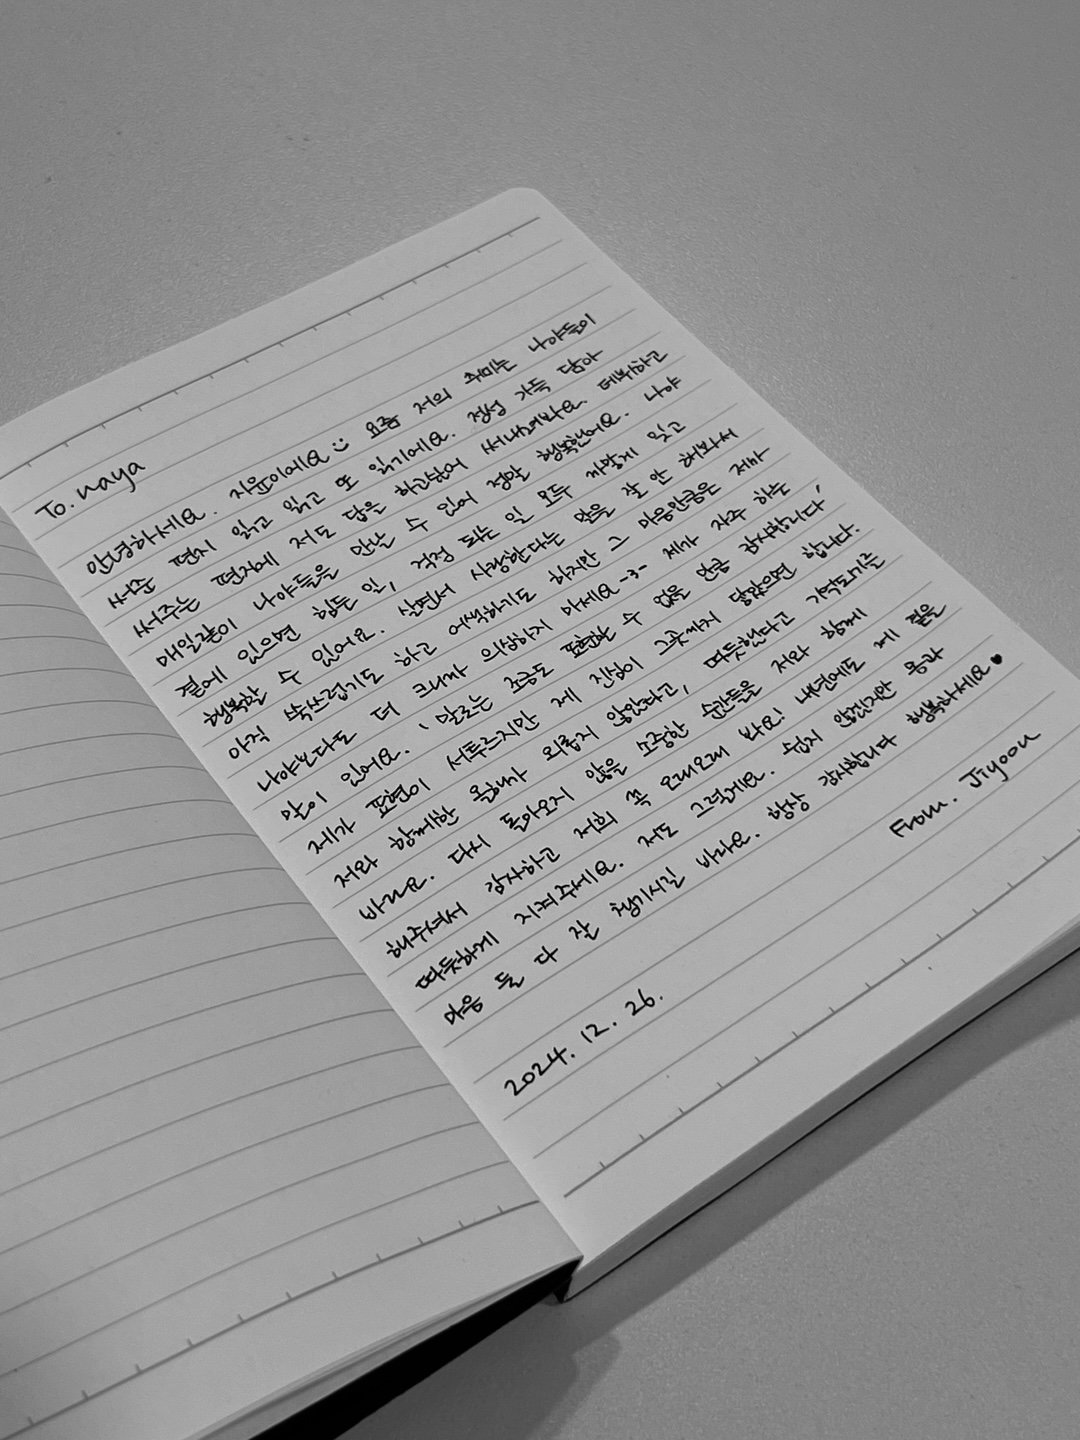 To. naya
안녕하세요. 지윤이에요 :) 요즘 저의 취미는 나야들이
써준 편지 읽고 읽고 또 읽기에요. 정성 가득 담아
써주는 편지에 저도 답을 하고싶어 써내려봐요. 데뷔하고
매일같이 나야들을 만날 수 있어 정말 행복한데요. 나야
곁에 있으면 힘든 일, 걱정 되는 일 모두 까맣게 잊고
행복할 수 있어요. 살면서 사랑한다는 말을 잘 안 해봐서
아직 부끄럽기도 하고 어색하기도 하지만 그 마음만큼은 제가
나야보다도 더 크니까 의심하지 마세요-3- 제가 자주 하는
말이 있어요. '말로는 조금도 표현할 수 없을 만큼 감사합니다'
제가 표현이 서투르지만 제 진심이 그곳까지 닿았으면 합니다.
저와 함께한 올해가 외롭지 않았다고, 따듯했다고 기억되기를
바라요. 다시 돌아오지 않을 소중한 순간들을 저와 함께
해주셔서 감사하고 저희 쭉 오래오래 봐요! 내년에도 제 곁을
따듯하게 지켜주세요. 저도 그럴게요. 쉽지 않겠지만 몸과
마음 둘 다 잘 챙기시길 바라요. 항상 감사합니다 행복하세요♥
From. Jiyoon
2024. 12. 26.